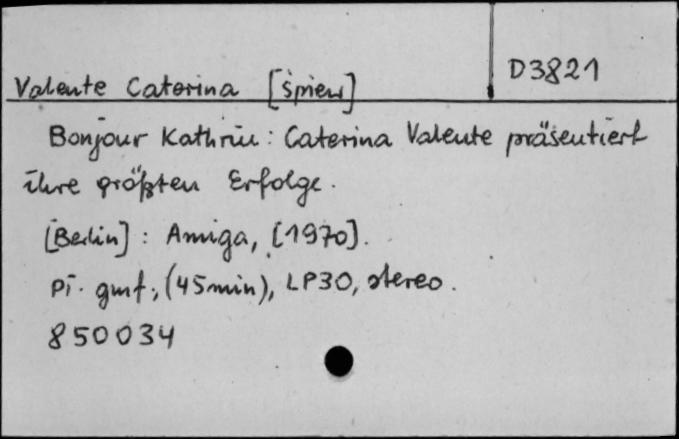 D3821
Valente Caterina [śpiew]
Bonjour Kathrin: Caterina Valente präsentiert
ihre größten Erfolge.
[Berlin]: Amiga, [1970].
Pł. gmf., (45min), LP30, stereo.
850034